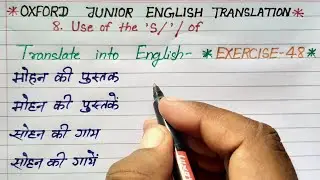 *OXFORD JUNIOR ENGLISH TRANSLATION*
8. Use of the 's/'/of
Translate into English- *EXERCISE-48*
मोहन की पुस्तक
मोहन की पुस्तकें
सोहन की गाय
सोहन की गायें